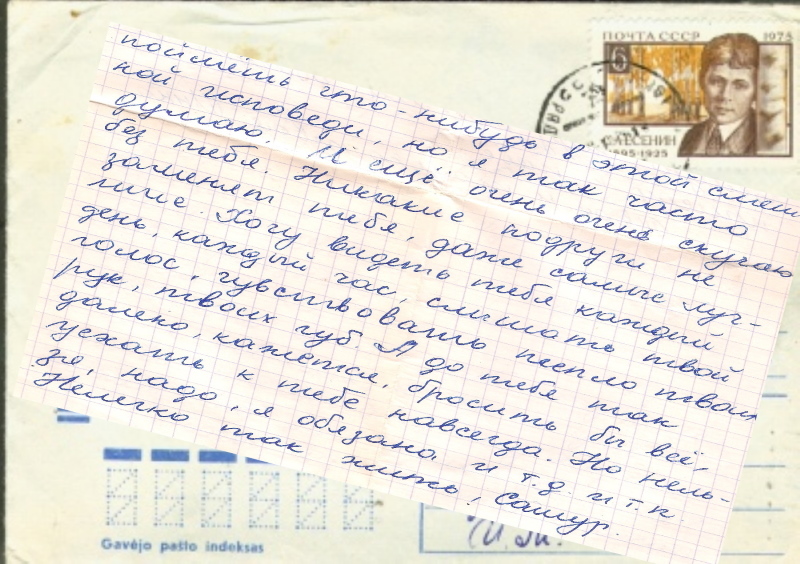 ПОЧТА СССР 1975
6
С. А. ЕСЕНИН
1895-1925
поймёшь что-нибудь в этой смеш
ной исповеди, но я так часто
думаю. И ещё очень очень скучаю
без тебя. Никакие подруги не
заменят тебя, даже самые луч-
шие. Хочу видеть тебя каждый
день, каждый час, слышать твой
голос, чувствовать тепло твоих
рук, твоих губ. А до тебя так
далеко, кажется, бросить бы всё,
уехать к тебе навсегда. Но нель-
зя, надо, я обязана и т.д. и т.п.
Нелегко так жить, Сашур.
Gavėjo pašto indeksas